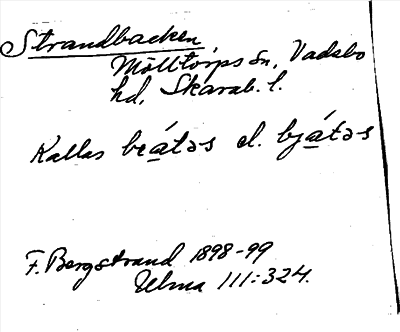 Strandbacken
Mölltorps sn, Vadsbo
hd, Skarab. l.
Kallas beátəs el. bjátəs
F. Bergstrand 1898-99
Ulma 111:324.